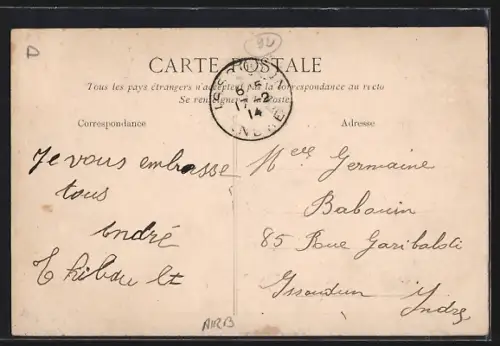 a
92
CARTE POSTALE
Tous les pays étrangers n'acceptent pas la correspondance au recto
Se renseigner à la Poste
ISSOUDUN
6 - 5
17 - 2
14
INDRE
Correspondance
Je vous embrasse
tous
André
Thibault
Adresse
Melle Germaine
Babouin
85 Rue Garibaldi
Issoudun Indre
AIRB